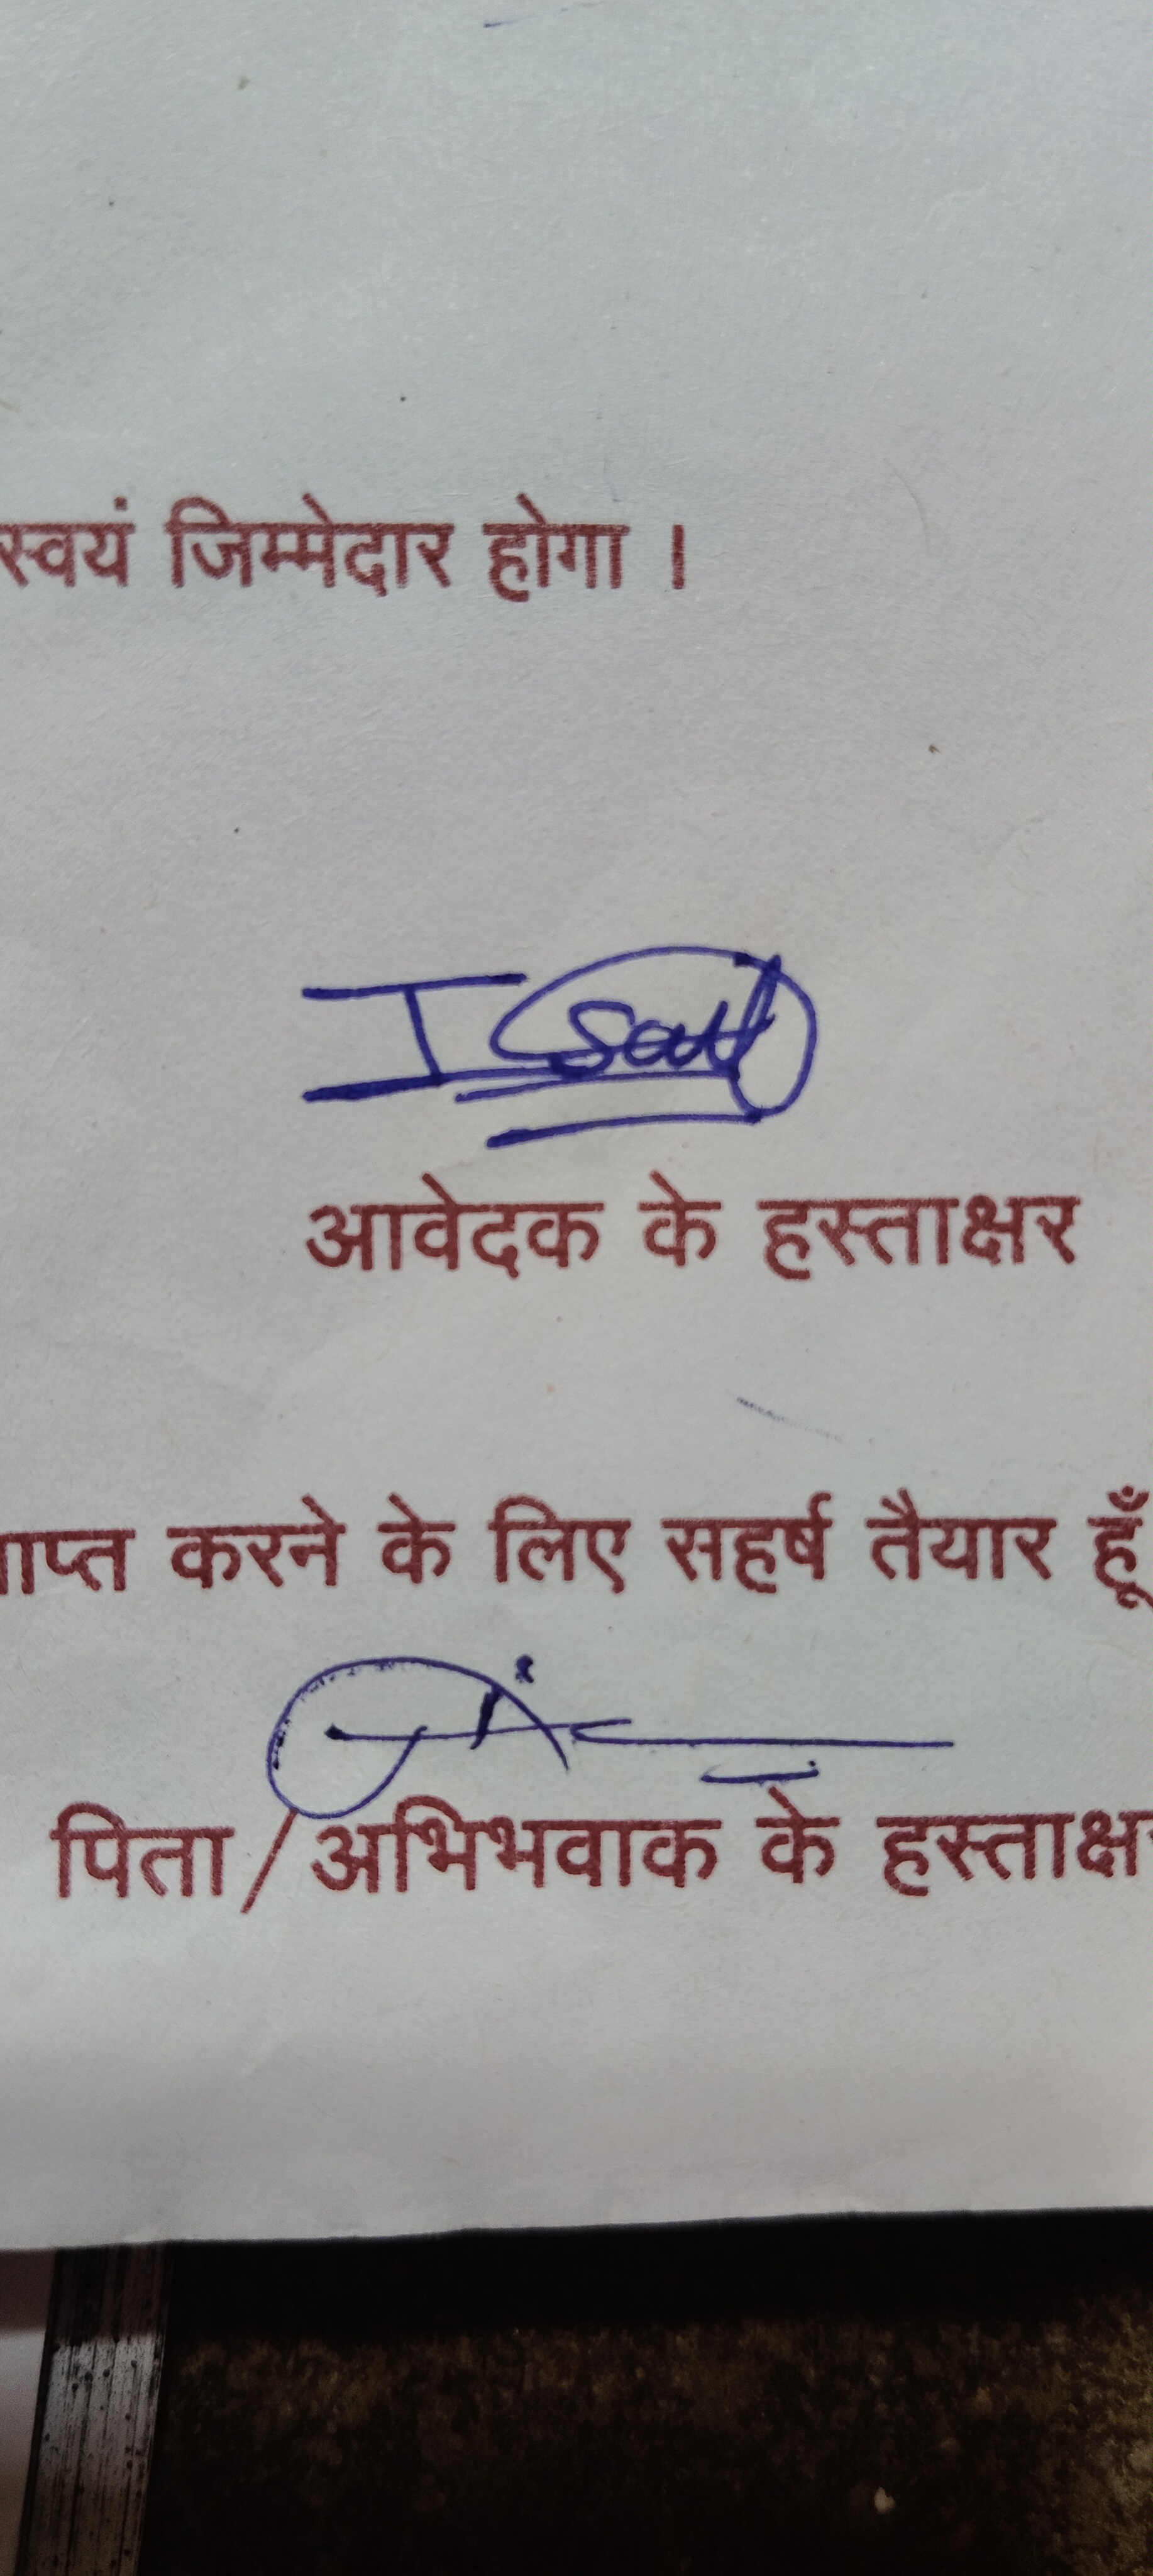 स्वयं जिम्मेदार होगा ।
आवेदक के हस्ताक्षर
करने के लिए सहर्ष तैयार हूँ
पिता / अभिभवाक के